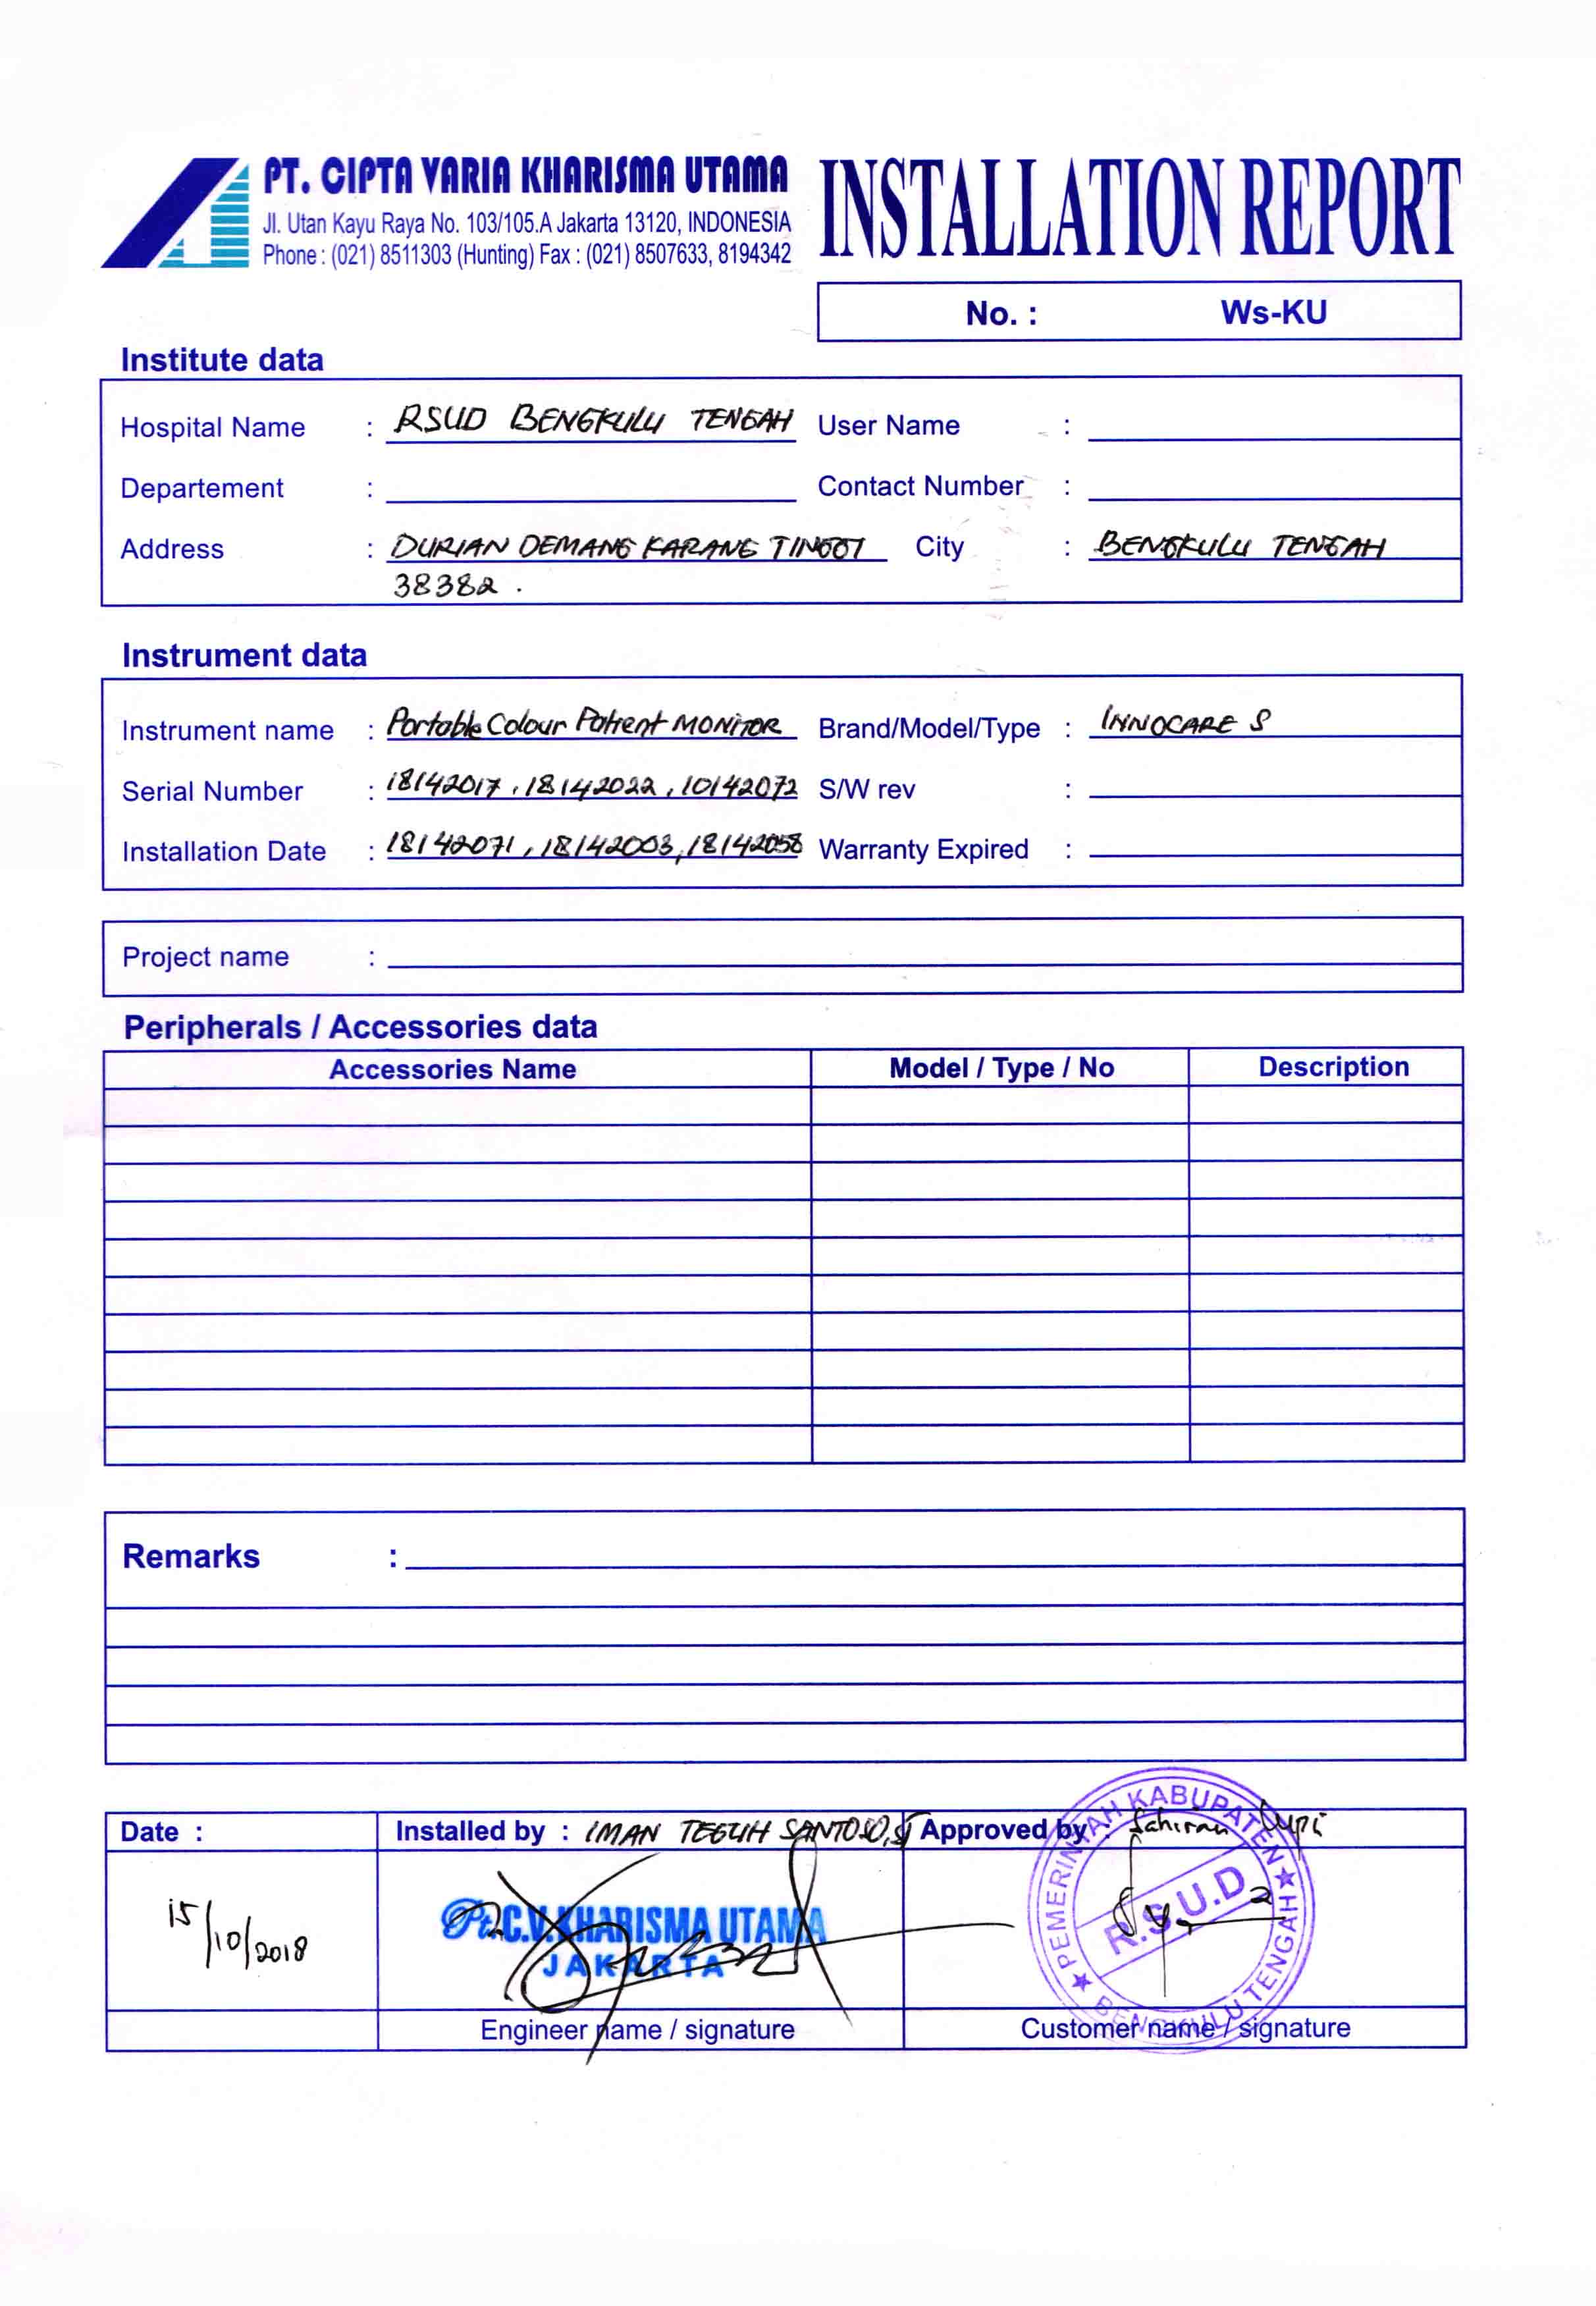 PT. CIPTA VARIA KHARISMA UTAMA
Jl. Utan Kayu Raya No. 103/105.A Jakarta 13120, INDONESIA
Phone : (021) 8511303 (Hunting) Fax : (021) 8507633, 8194342
INSTALLATION REPORT
No. : Ws-KU
Institute data
Hospital Name : RSUD BENGKULU TENGAH User Name :
Departement : Contact Number :
Address : DURIAN DEMANG KARANG TINGGI City : BENGKULU TENGAH
38382 .
Instrument data
Instrument name : Portable Colour Patient MONITOR Brand/Model/Type : INNOCARE S
Serial Number : 18142017 , 18142022 , 10142072 S/W rev :
Installation Date : 18142071 , 18142003, 18142058 Warranty Expired :
Project name :
Peripherals / Accessories data
Accessories Name Model / Type / No Description
Remarks :
Date : Installed by : IMAN TEGUH SANTOSO, ST Approved by :
15/10/2018
Pt. C.V. KHARISMA UTAMA
JAKARTA
PEMERINTAH KABUPATEN
R.S.U.D
BENGKULU TENGAH
Engineer name / signature Customer name / signature